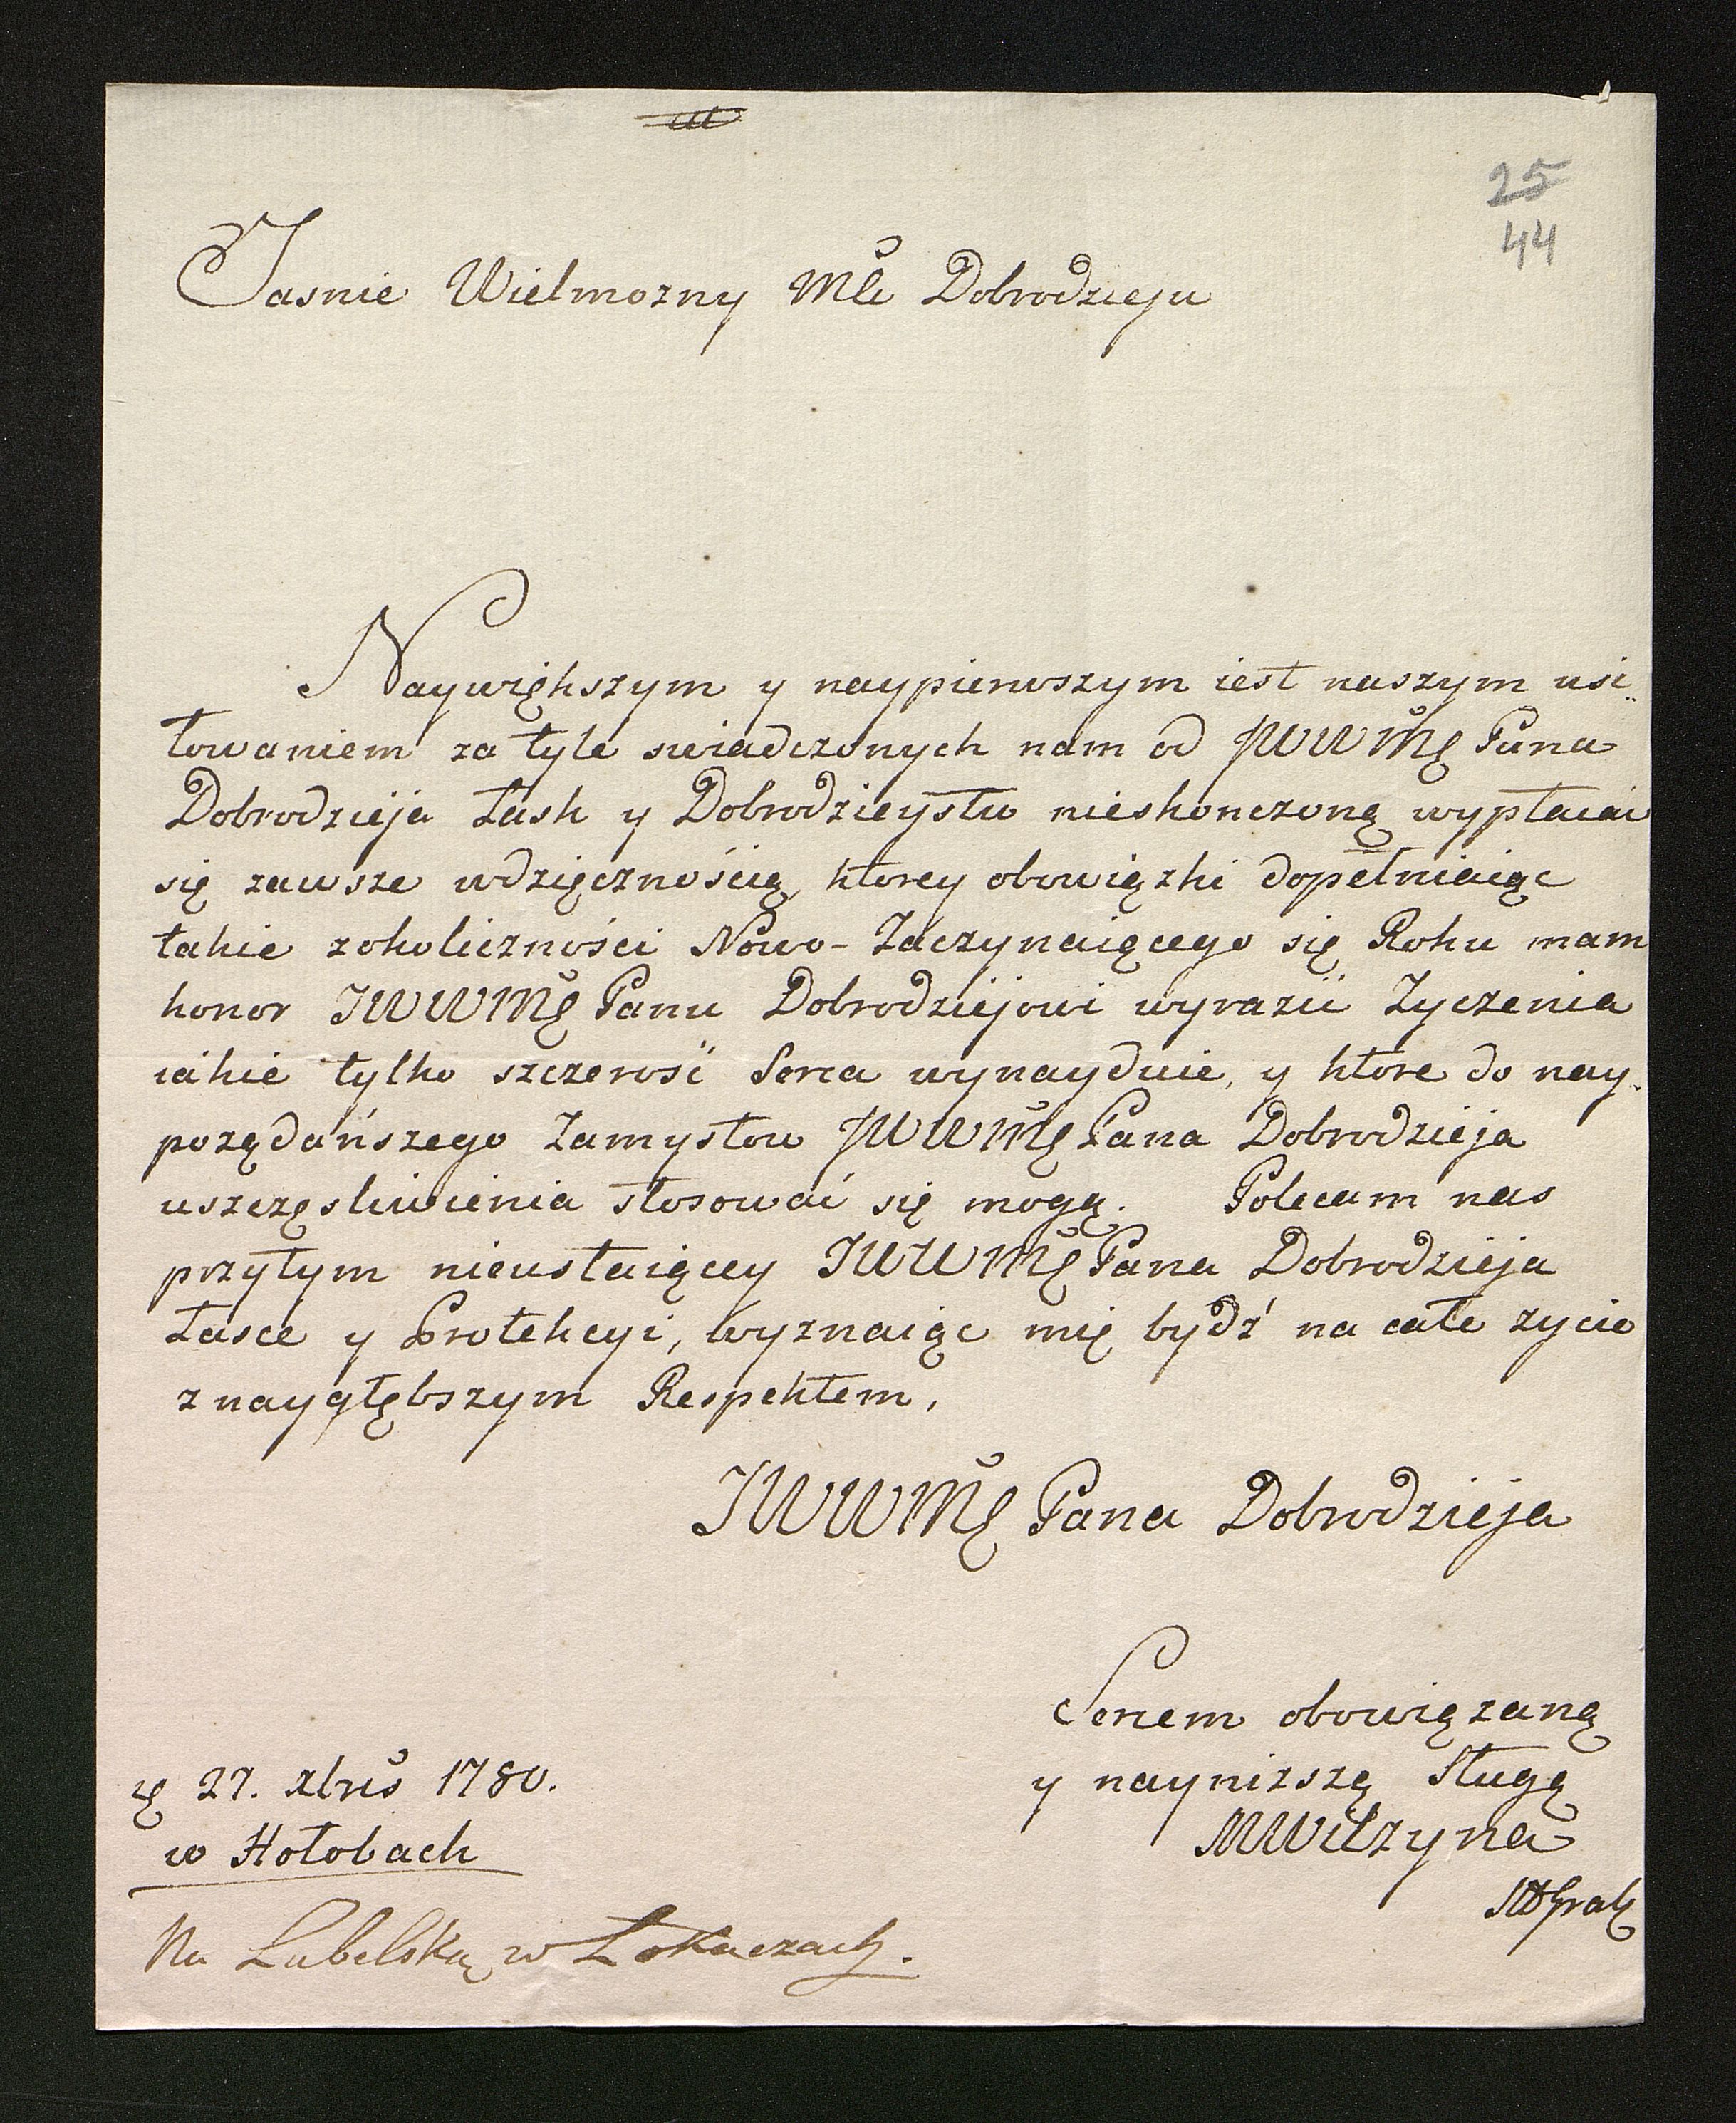 25
44
Jasnie Wielmozny Mći Dobrodzieju
Naywiększym y naypierwszym iest naszym usi„
łowaniem za tyle swiadczonych nam od JWWMĘ Pana
Dobrodzieja Łask y Dobrodzieystw nieskonczoną wypłaiać
się zawsze wdzięcznością, ktorey obowiązki dopełniaiąc
takie zokoliczności Nowo-Zaczynaiącego się Roku mam
honor JWWMĘ Panu Dobrodziejowi wyrazić Zyczenia
iakie tylko szczerość Serca wynayduie, y ktore do nay„
pożądańszego Zamysłow JWWMĘ Pana Dobrodzieja
uszczęsliwienia stosować się mogą. Polecam nas
przytym nieustaiącey JWWMĘ Pana Dobrodzieja
Łasce y Protekcyi, wyznaiąc mię bydź na całe zycie
z naygłębszym Respektem,
JWWMĘ Pana Dobrodzieja
Sercem obowiązaną
y nayniższą Sługą
MWilżyna
27. Xbris 1780.
w Hołobach
Na Lubelską w Łokaczach.